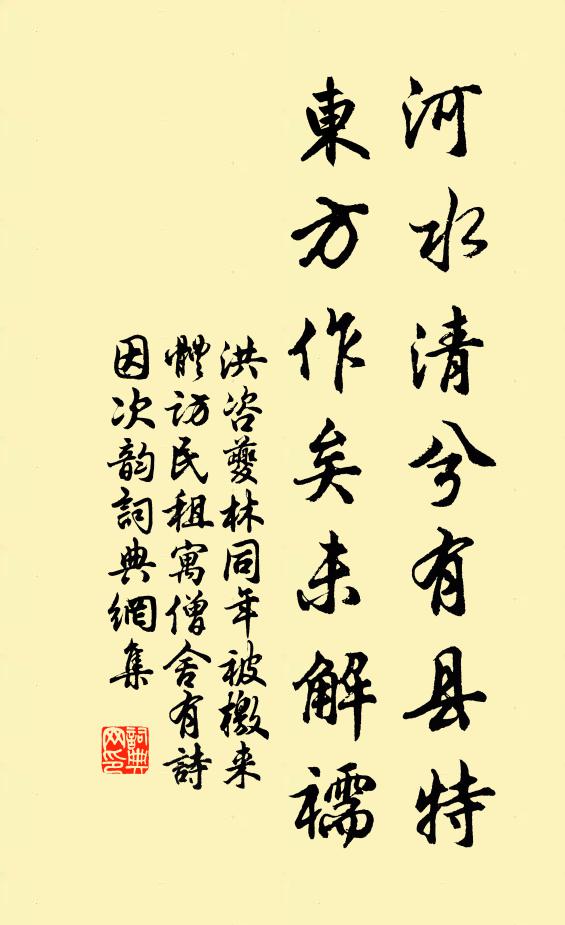 河水清兮有县特
東方作矣未解襦
洪咨夔林同年被檄来
體访民租寓僧舍有詩
因次韵詞典網集
詞典网印